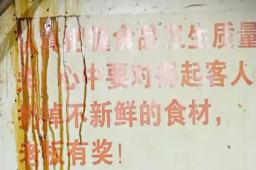 食品卫生质量
心中要对得起客人
掉不新鲜的食材，
老板有奖！